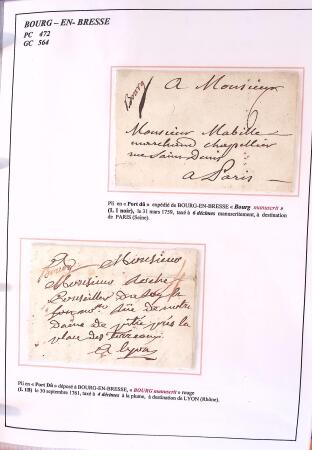 BOURG – EN- BRESSE
PC 472
GC 564
Bourg
A Monsieur
Monsieur Mabille
marchand chapellier
rue Saint Denis
A Paris
Pli en « Port dû » expédié de BOURG-EN-BRESSE « Bourg manuscrit »
(L 1 noir), le 31 mars 1759, taxé à 6 décimes manuscritement, à destination
de PARIS (Seine).
bourg
A Monsieur
Monsieur
Conseiller Du Roy
rüe de notre
Dame de près la
place des terreaux
A Lyon
Pli en « Port Dû » déposé à BOURG-EN-BRESSE, « BOURG manuscrit » rouge
(L 1B) le 30 septembre 1761, taxé à 4 décimes à la plume, à destination de LYON (Rhône).